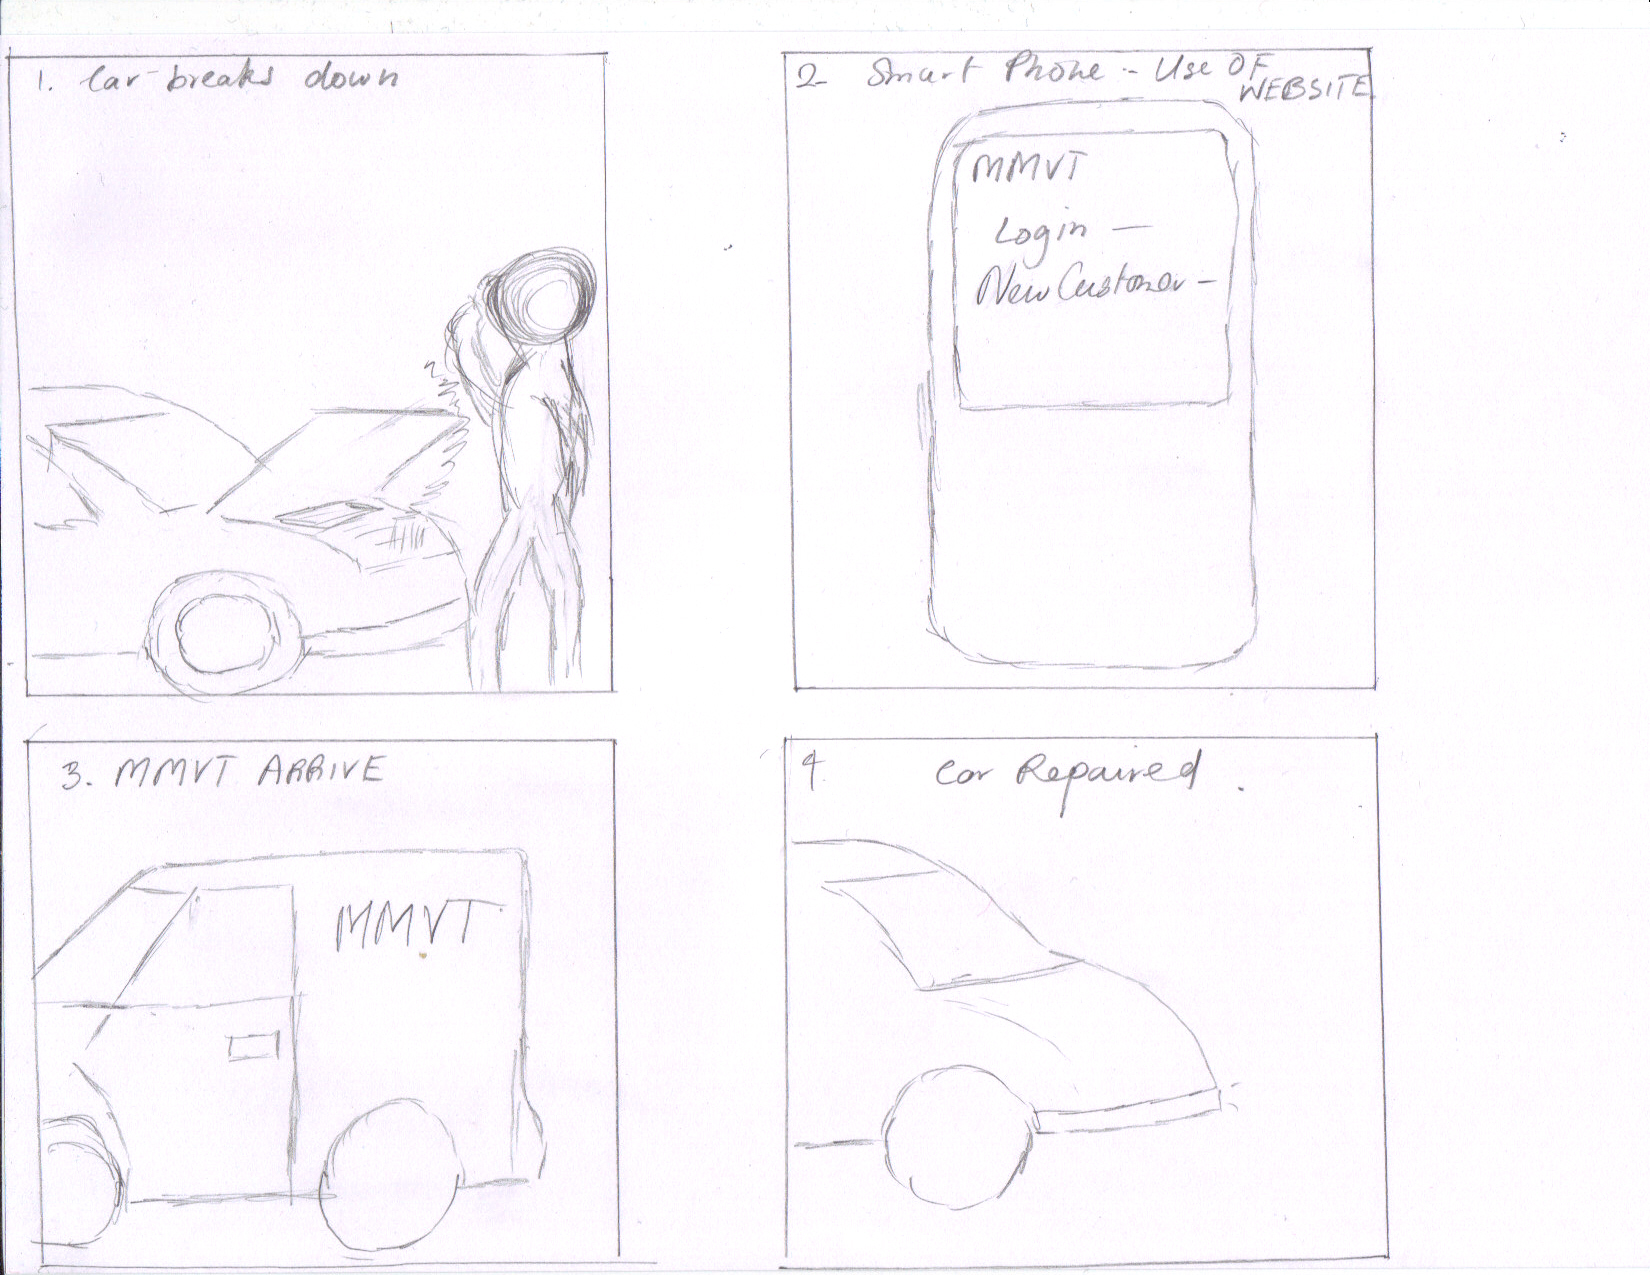 1. Car breaks down
2 Smart Phone - Use OF
WEBSITE
MMVT
Login —
New Customer -
3. MMVT ARRIVE
MMVT
4. Car Repaired.